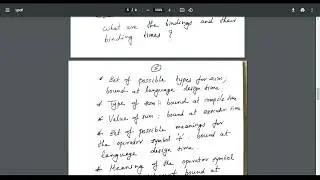 what are the bindings and their
binding times ?
②
* Set of possible types for sum;
bound at language design time
* Type of sum : bound at compile time
* Value of sum : bound at execution time
* Set of possible meanings for
the operator symbol : bound at
language design time
* Meaning of the operator symbol
bound at